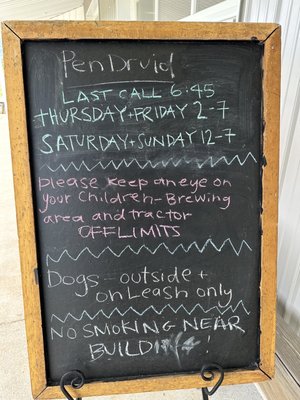 PenDruid
LAST CALL 6:45
THURSDAY+FRIDAY 2-7
SATURDAY+SUNDAY 12-7
Please keep an eye on
your Children-Brewing
area and tractor
OFFLIMITS
Dogs - outside +
on Leash only
NO SMOKING NEAR
BUILDING!